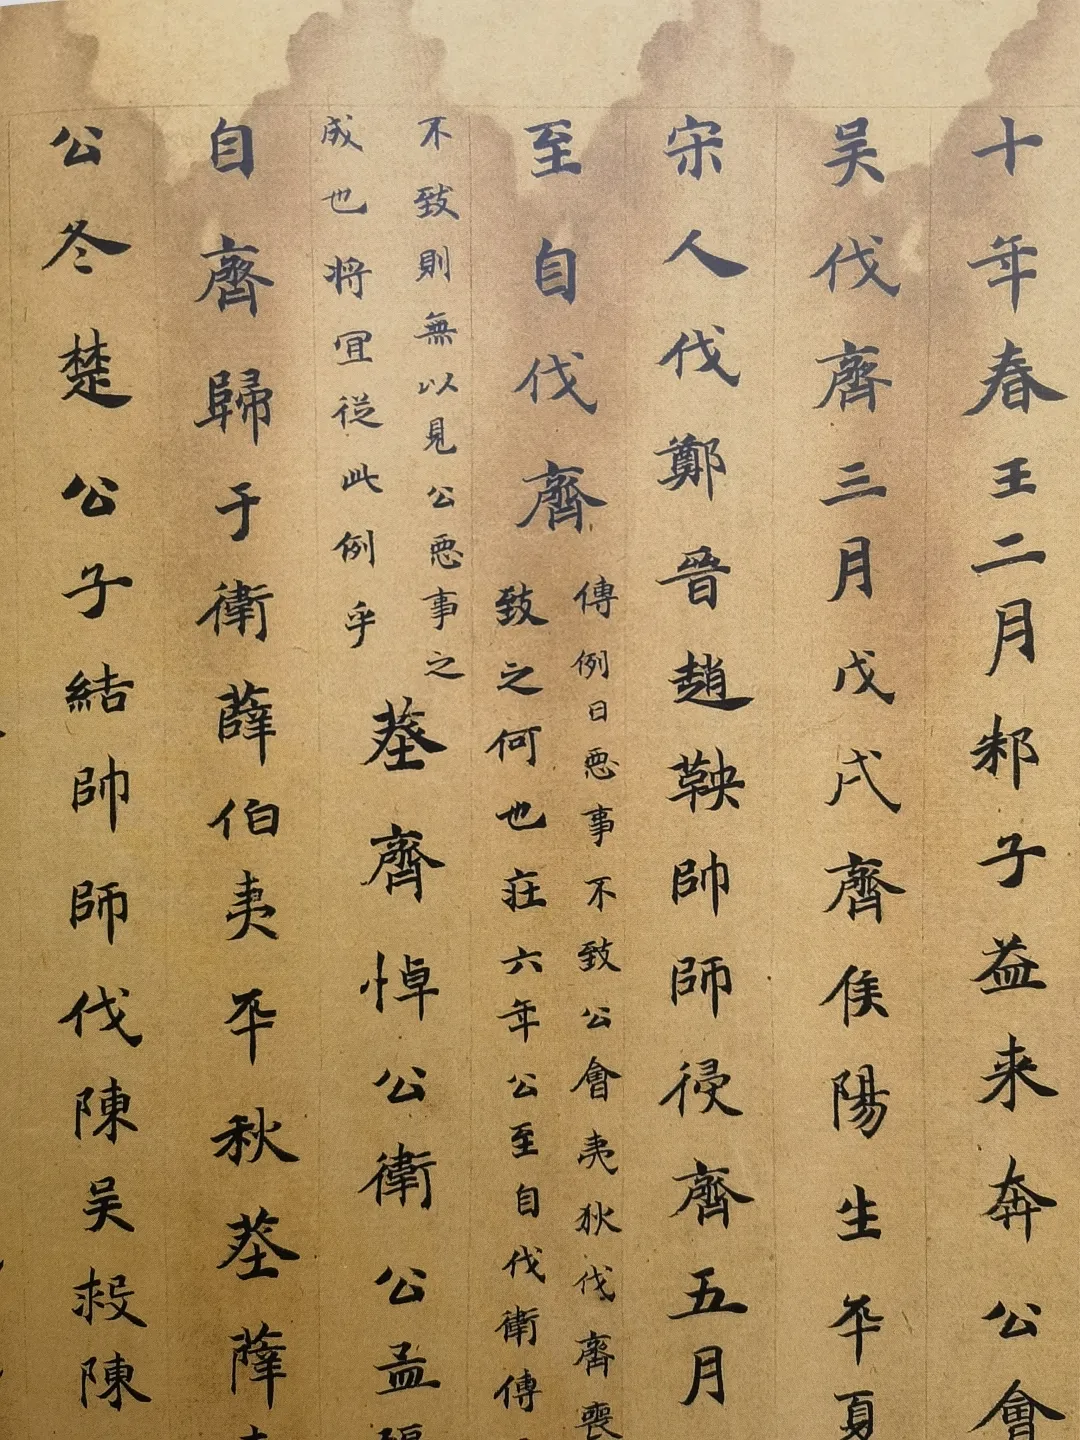 十年春王二月邾子益来奔公會
吴伐齊三月戊戌齊侯陽生卒夏
宋人伐鄭晉趙鞅帥師侵齊五月
至自伐齊
傳例曰惡事不致公會夷狄伐齊喪
致之何也莊六年公至自伐衛傳
不致則無以見公惡事之
成也将宜從此例乎
葬齊悼公衛公孟彄
自齊歸于衛薛伯夷卒秋葬薛
公冬楚公子結帥師伐陳吴救陳